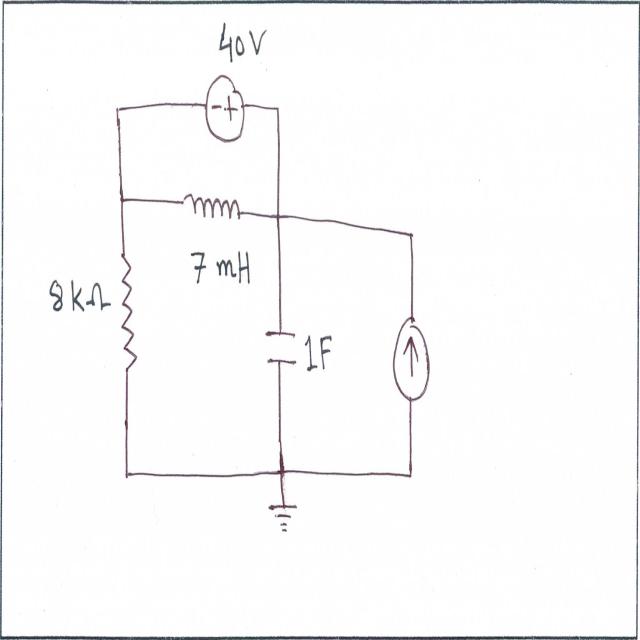 40V
- +
7 mH
8kΩ
1F